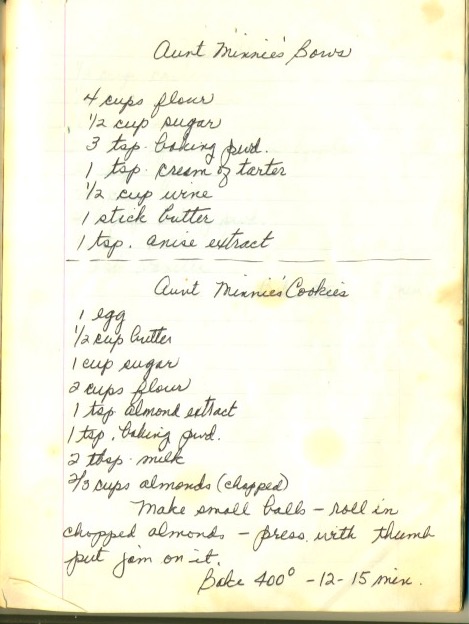 Aunt Minnie's Bows
4 cups flour
1/2 cup sugar
3 tsp. baking pwd.
1 tsp. cream of tarter
1/2 cup wine
1 stick butter
1 tsp. anise extract
Aunt Minnie's Cookies
1 egg
1/2 cup butter
1 cup sugar
2 cups flour
1 tsp almond extract
1 tsp. baking pwd.
2 tbsp. milk
2/3 cups almonds (chopped)
Make small balls - roll in
chopped almonds - press with thumb
put jam on it.
Bake 400° - 12 - 15 min.